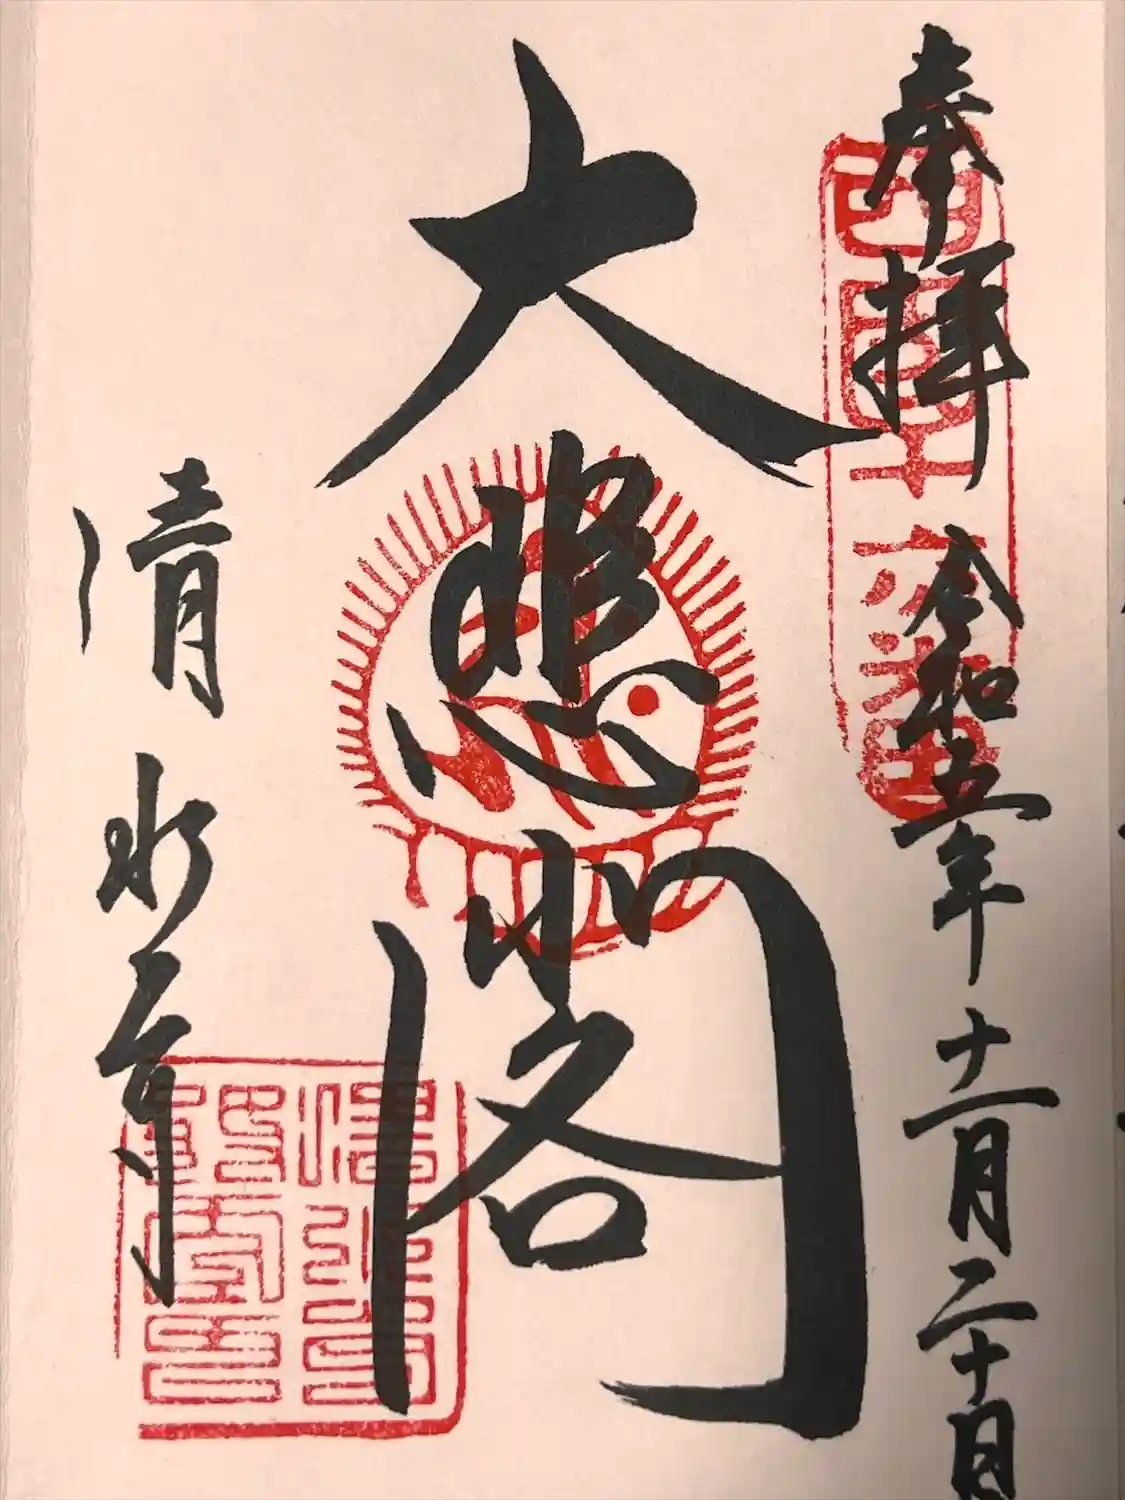 奉拝
令和五年十一月二十日
西国十六番
大悲閣
清水寺